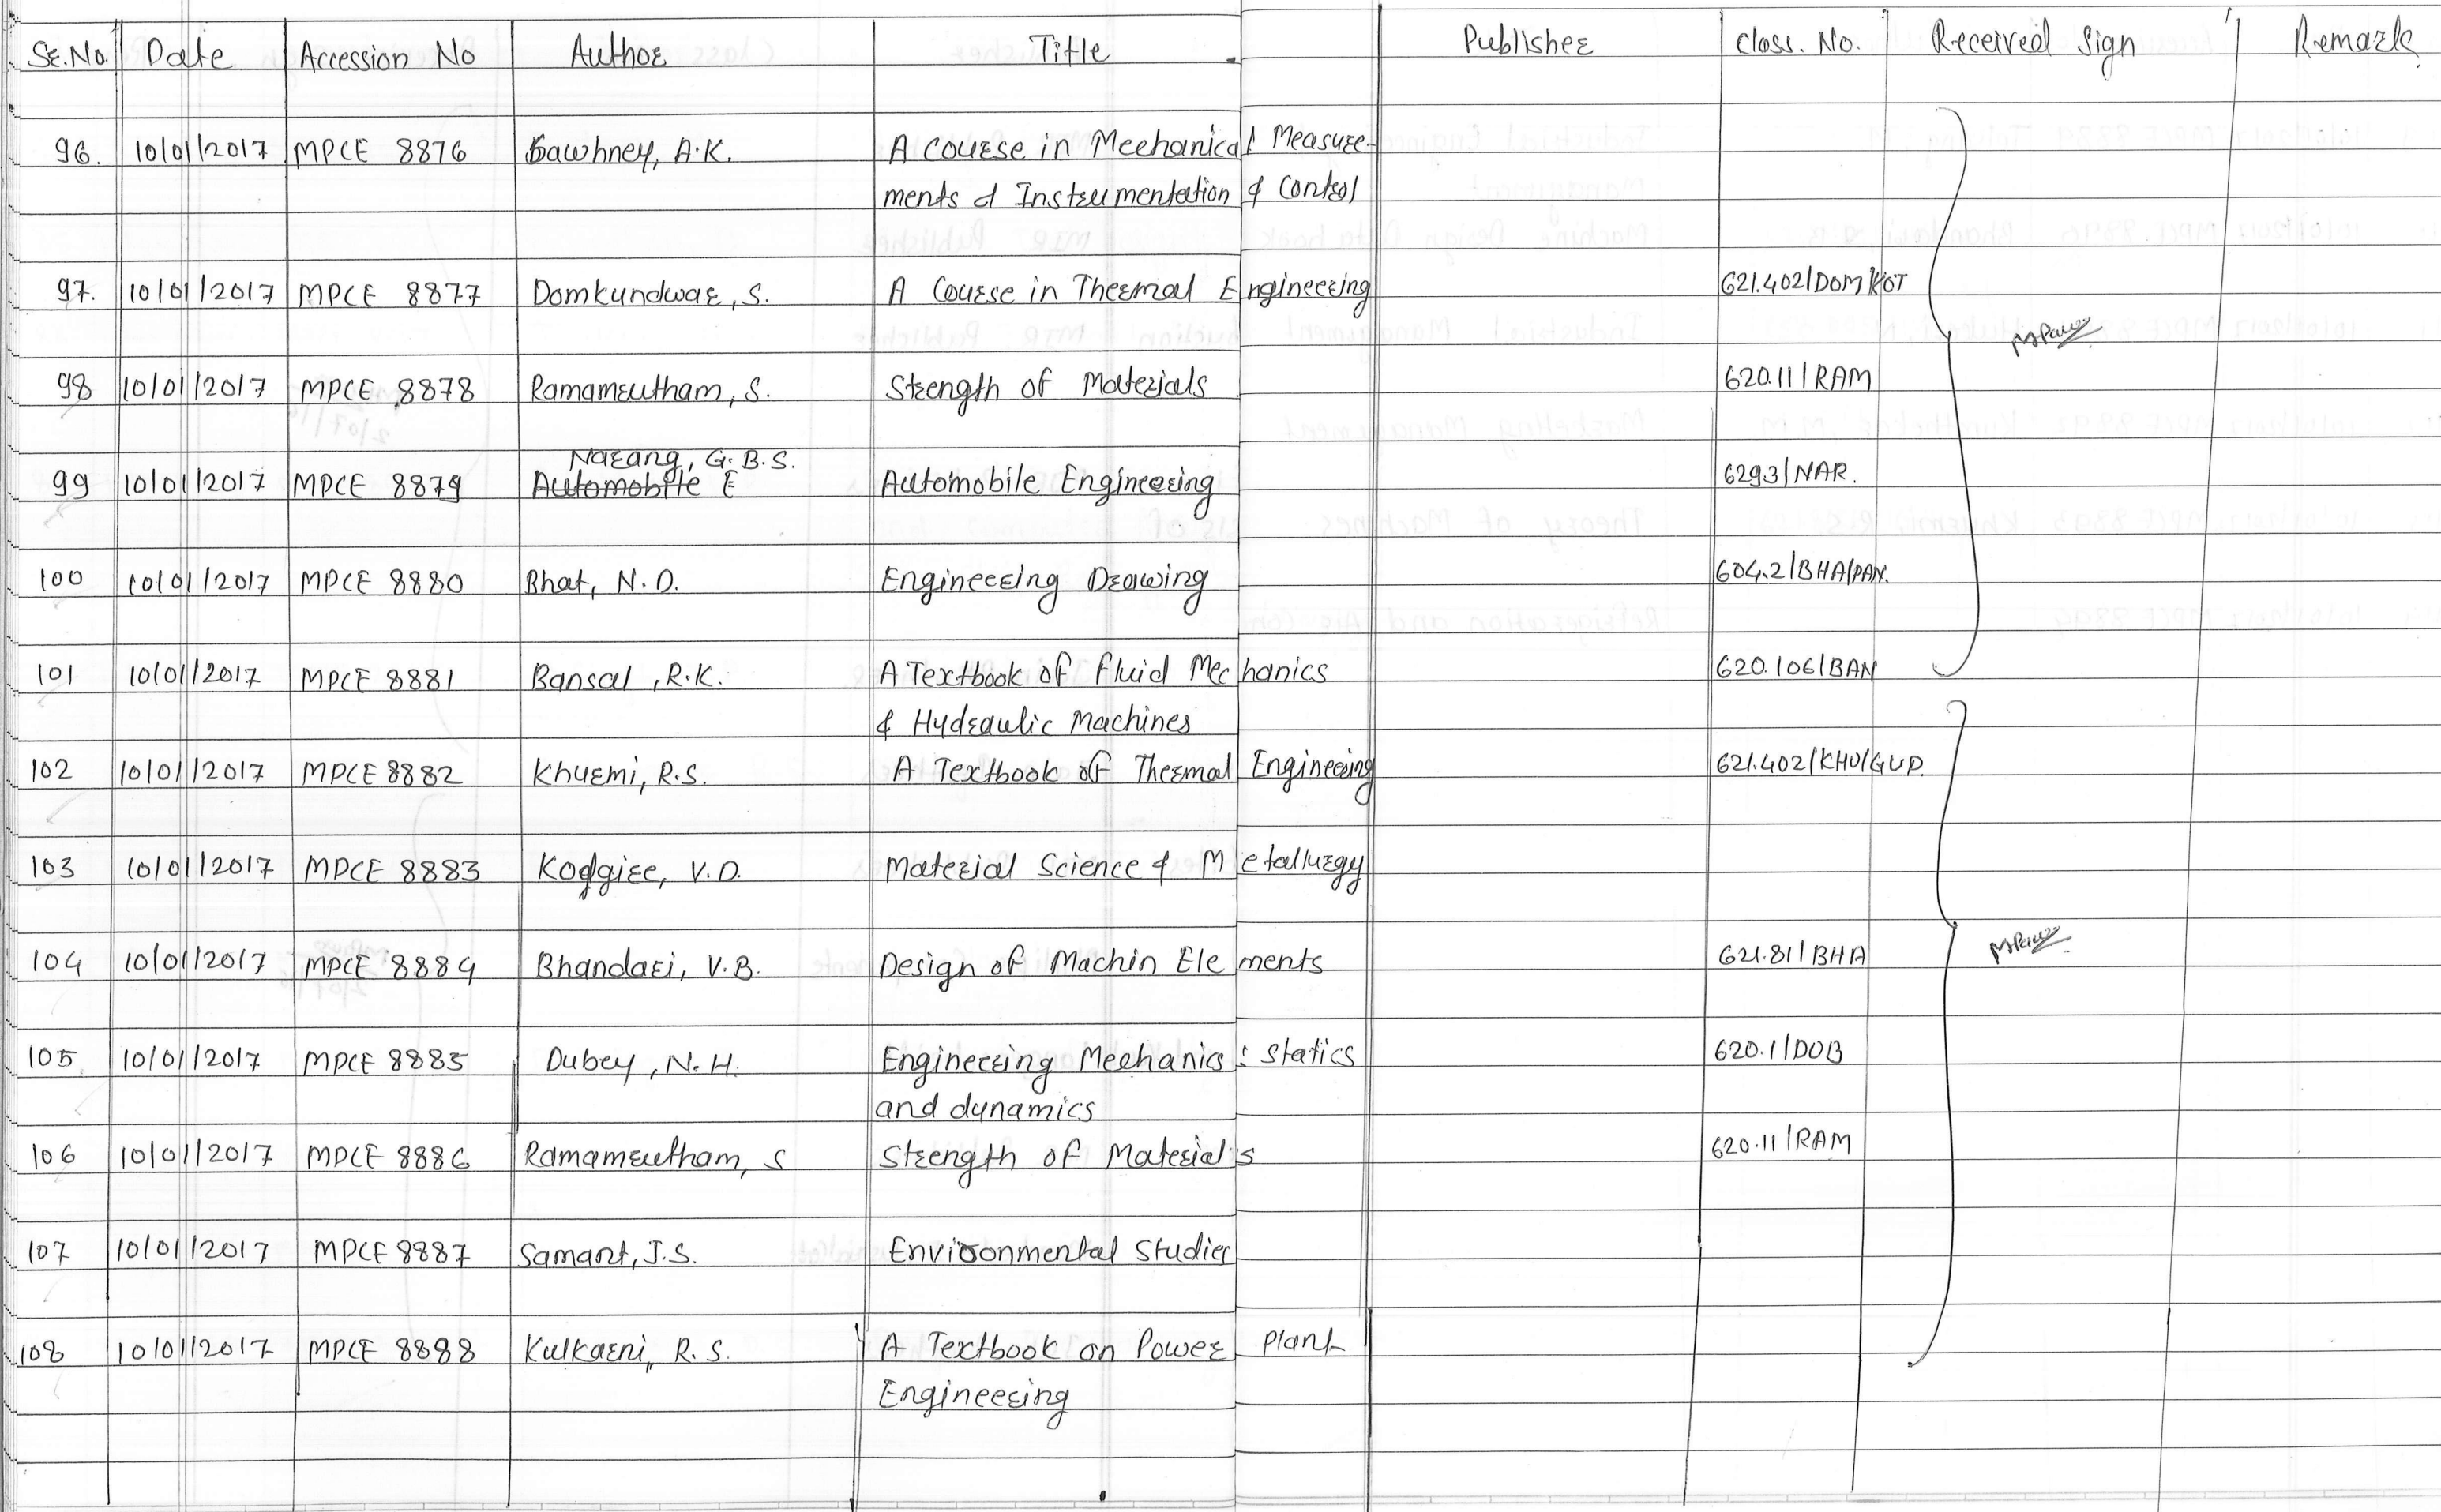 Sr.No. Date Accession No Author Title Publisher Class. No. Received Sign Remark
96. 10/01/2017 MPCE 8876 Sawhney, A.K. A Course in Mechanical Measure-
ments d Instrumentation & Control
97. 10/01/2017 MPCE 8877 Domkundwar, S. A Course in Thermal Engineering 621.402/DOM/KOT
98 10/01/2017 MPCE 8878 Ramamrutham, S. Strength of Materials 620.11/RAM
Narang, G.B.S.
99 10/01/2017 MPCE 8879 Automobile E Automobile Engineering 629.3/NAR.
100 10/01/2017 MPCE 8880 Bhat, N.D. Engineering Drawing 604.2/BHA/PAN.
101 10/01/2017 MPCE 8881 Bansal, R.K. A Textbook of fluid Mechanics 620.106/BAN
& Hydraulic Machines
102 10/01/2017 MPCE 8882 Khurmi, R.S. A Textbook of Thermal Engineering 621.402/KHU/GUP.
103 10/01/2017 MPCE 8883 Kodgire, V.D. Material Science & Metallurgy
104 10/01/2017 MPCE 8884 Bhandari, V.B. Design of Machin Elements 621.81/BHA
105 10/01/2017 MPCE 8885 Dubey, N.H. Engineering Mechanics : Statics 620.1/DUB
and dynamics
106 10/01/2017 MPCE 8886 Ramamrutham, S Strength of Materials 620.11/RAM
107 10/01/2017 MPCE 8887 Samant, J.S. Environmental Studies
108 10/01/2017 MPCE 8888 Kulkarni, R.S. A Textbook on Power Plant
Engineering